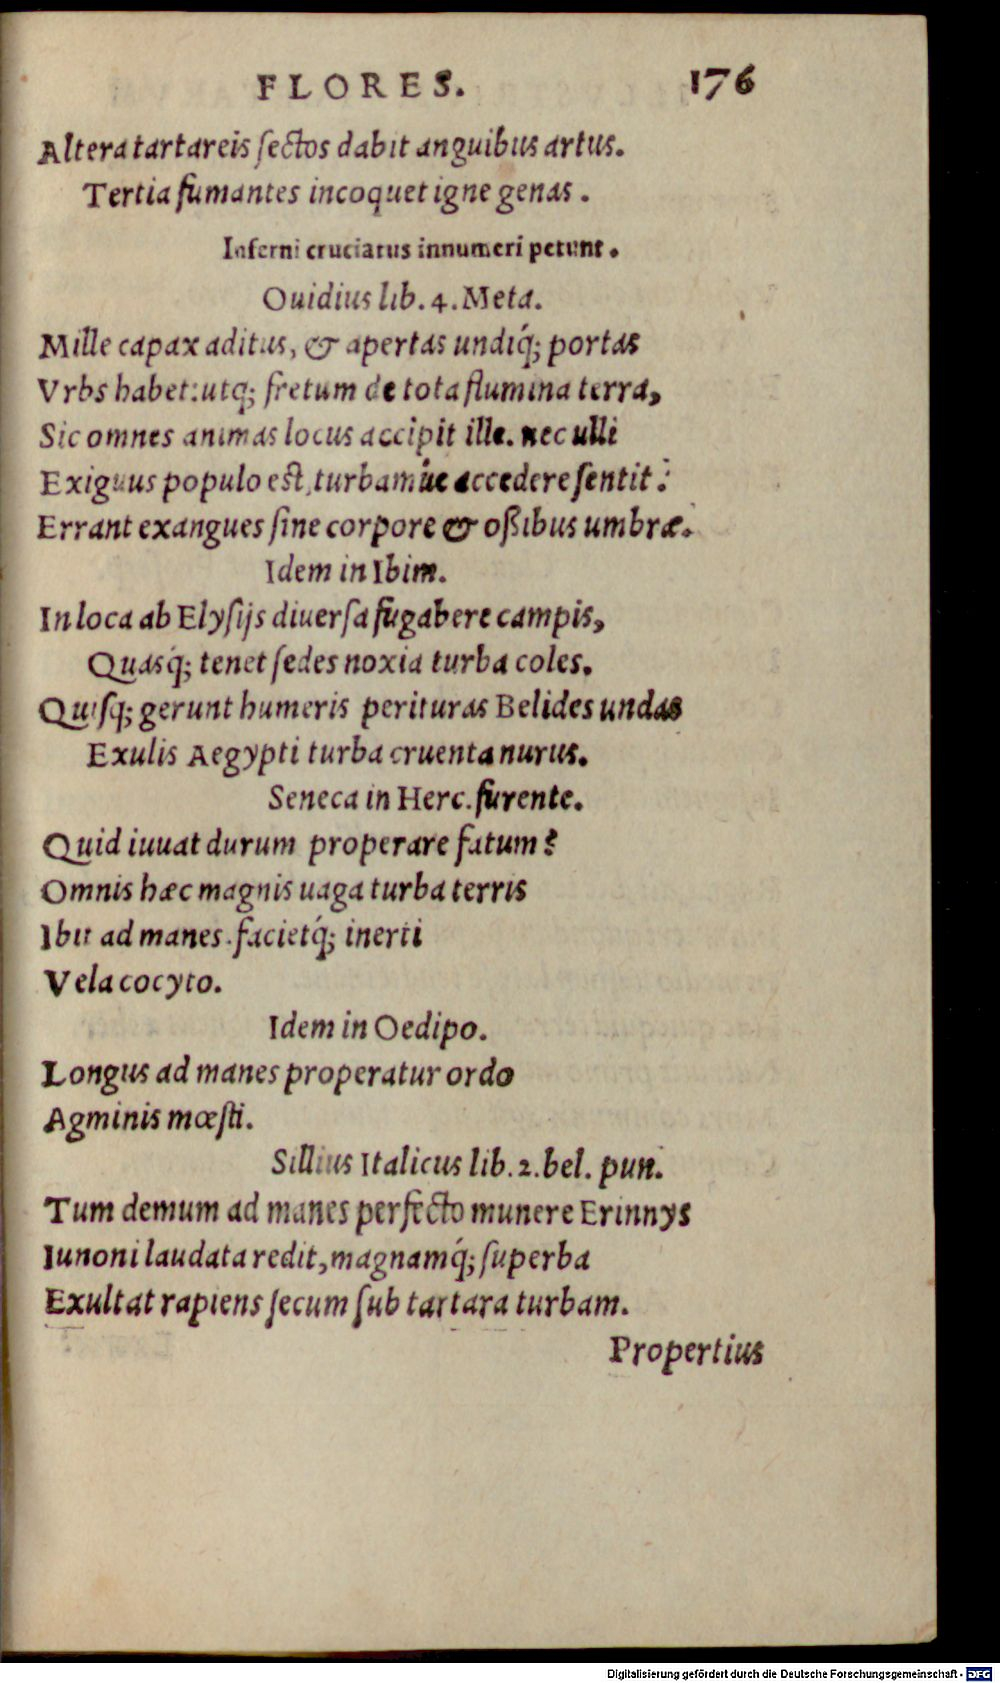 FLORES. 176
Altera tartareis ſectos dabit anguibus artus.
Tertia fumantes incoquet igne genas.
Inferni cruciatus innumeri petunt.
Ouidius lib. 4. Meta.
Mille capax aditus, & apertas undiq́; portas
Vrbs habet: utq; fretum de tota flumina terra,
Sic omnes animas locus accipit ille. nec ulli
Exiguus populo est, turbamúe accedere ſentit:
Errant exangues ſine corpore & oßibus umbræ.
Idem in Ibim.
In loca ab Elyſijs diuerſa fugabere campis,
Quasq́; tenet ſedes noxia turba coles.
Quiſq; gerunt humeris perituras Belides undas
Exulis Aegypti turba cruenta nurus.
Seneca in Herc. furente.
Quid iuuat durum properare fatum?
Omnis hæc magnis uaga turba terris
Ibit ad manes. facietq́; inerti
Vela cocyto.
Idem in Oedipo.
Longus ad manes properatur ordo
Agminis mœſti.
Sillius Italicus lib. 2. bel. pun.
Tum demum ad manes perfecto munere Erinnys
Iunoni laudata redit, magnamq́; ſuperba
Exultat rapiens ſecum ſub tartara turbam.
Propertius
Digitalisierung gefördert durch die Deutsche Forschungsgemeinschaft - DFG